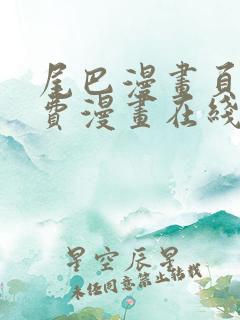 尾巴漫畫頁
費漫畫在綫
星空辰星
未经同意禁止转载